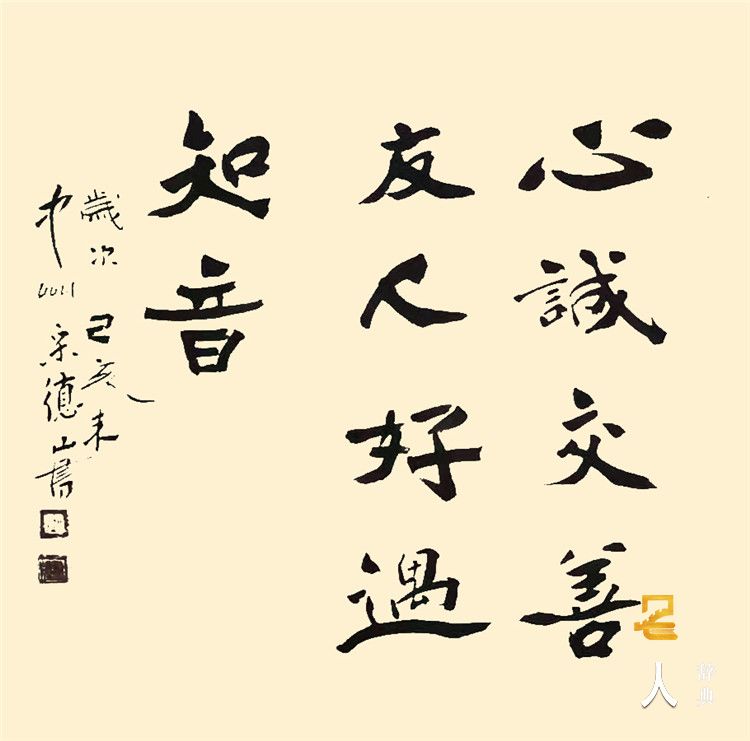 心誠交善
友人好遇
知音
歲次己亥末
中州宗德山書
人
辭典